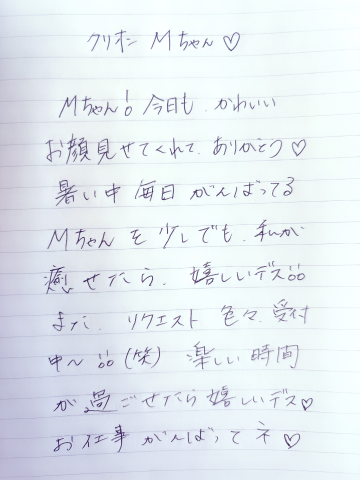 クリオネ Mちゃん♡
Mちゃん! 今日も かわいい
お顔見せてくれて、ありがとう♡
暑い中 毎日 がんばってる
Mちゃん を 少しでも、私が
癒せたら、嬉しいデス!!
また、リクエスト 色々、受付
中〜!! (笑) 楽しい時間
が過ごせたら嬉しいデス♡
お仕事 がんばって ネ♡